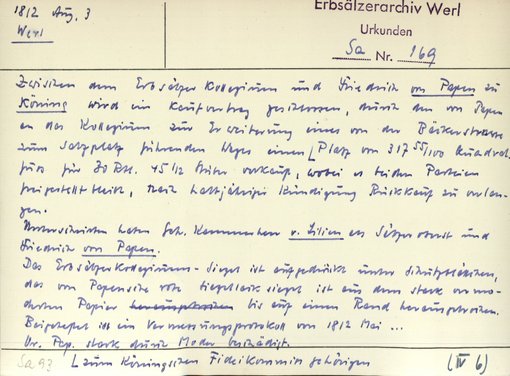 1812 Aug. 3
Werl
Erbsälzerarchiv Werl
Urkunden
Sa Nr. 169
Zwischen dem Erbsälzer Kollegium und Friedrich von Papen zu
Köning wird ein Kaufvertrag geschlossen, durch den von Papen
an das Kollegium zur Erweiterung eines von der Bäckerstrasse
zum Salzplatz führenden Weges einen ⌊Platz von 317 55/100 Quadrat
fuss für 70 Rt. 45 1/2 Stüber verkauf, wobei es beiden Parteien
freigestellt bleibt, nach halbjähriger Kündigung Rückkauf zu verlan-
gen.
Unterschrieben haben Geh. v. Lilien als Sälzeroberst und
Friedrich von Papen.
Das Erbsälzerkollegiums-Siegel ist aufgedrückt unter
das von Papensche rote Siegellacksiegel ist aus dem stark vermo-
derten Papier herausgebrochen bis auf einen Rand herausgebrochen.
Beigeheftet ist ein Vermessungsprotokoll von 1812 Mai ...
Or. Pap. stark durch Moder beschädigt.
Sa 92 ⌊zum Köningschen Fideikommiss gehörigen (IV 6)